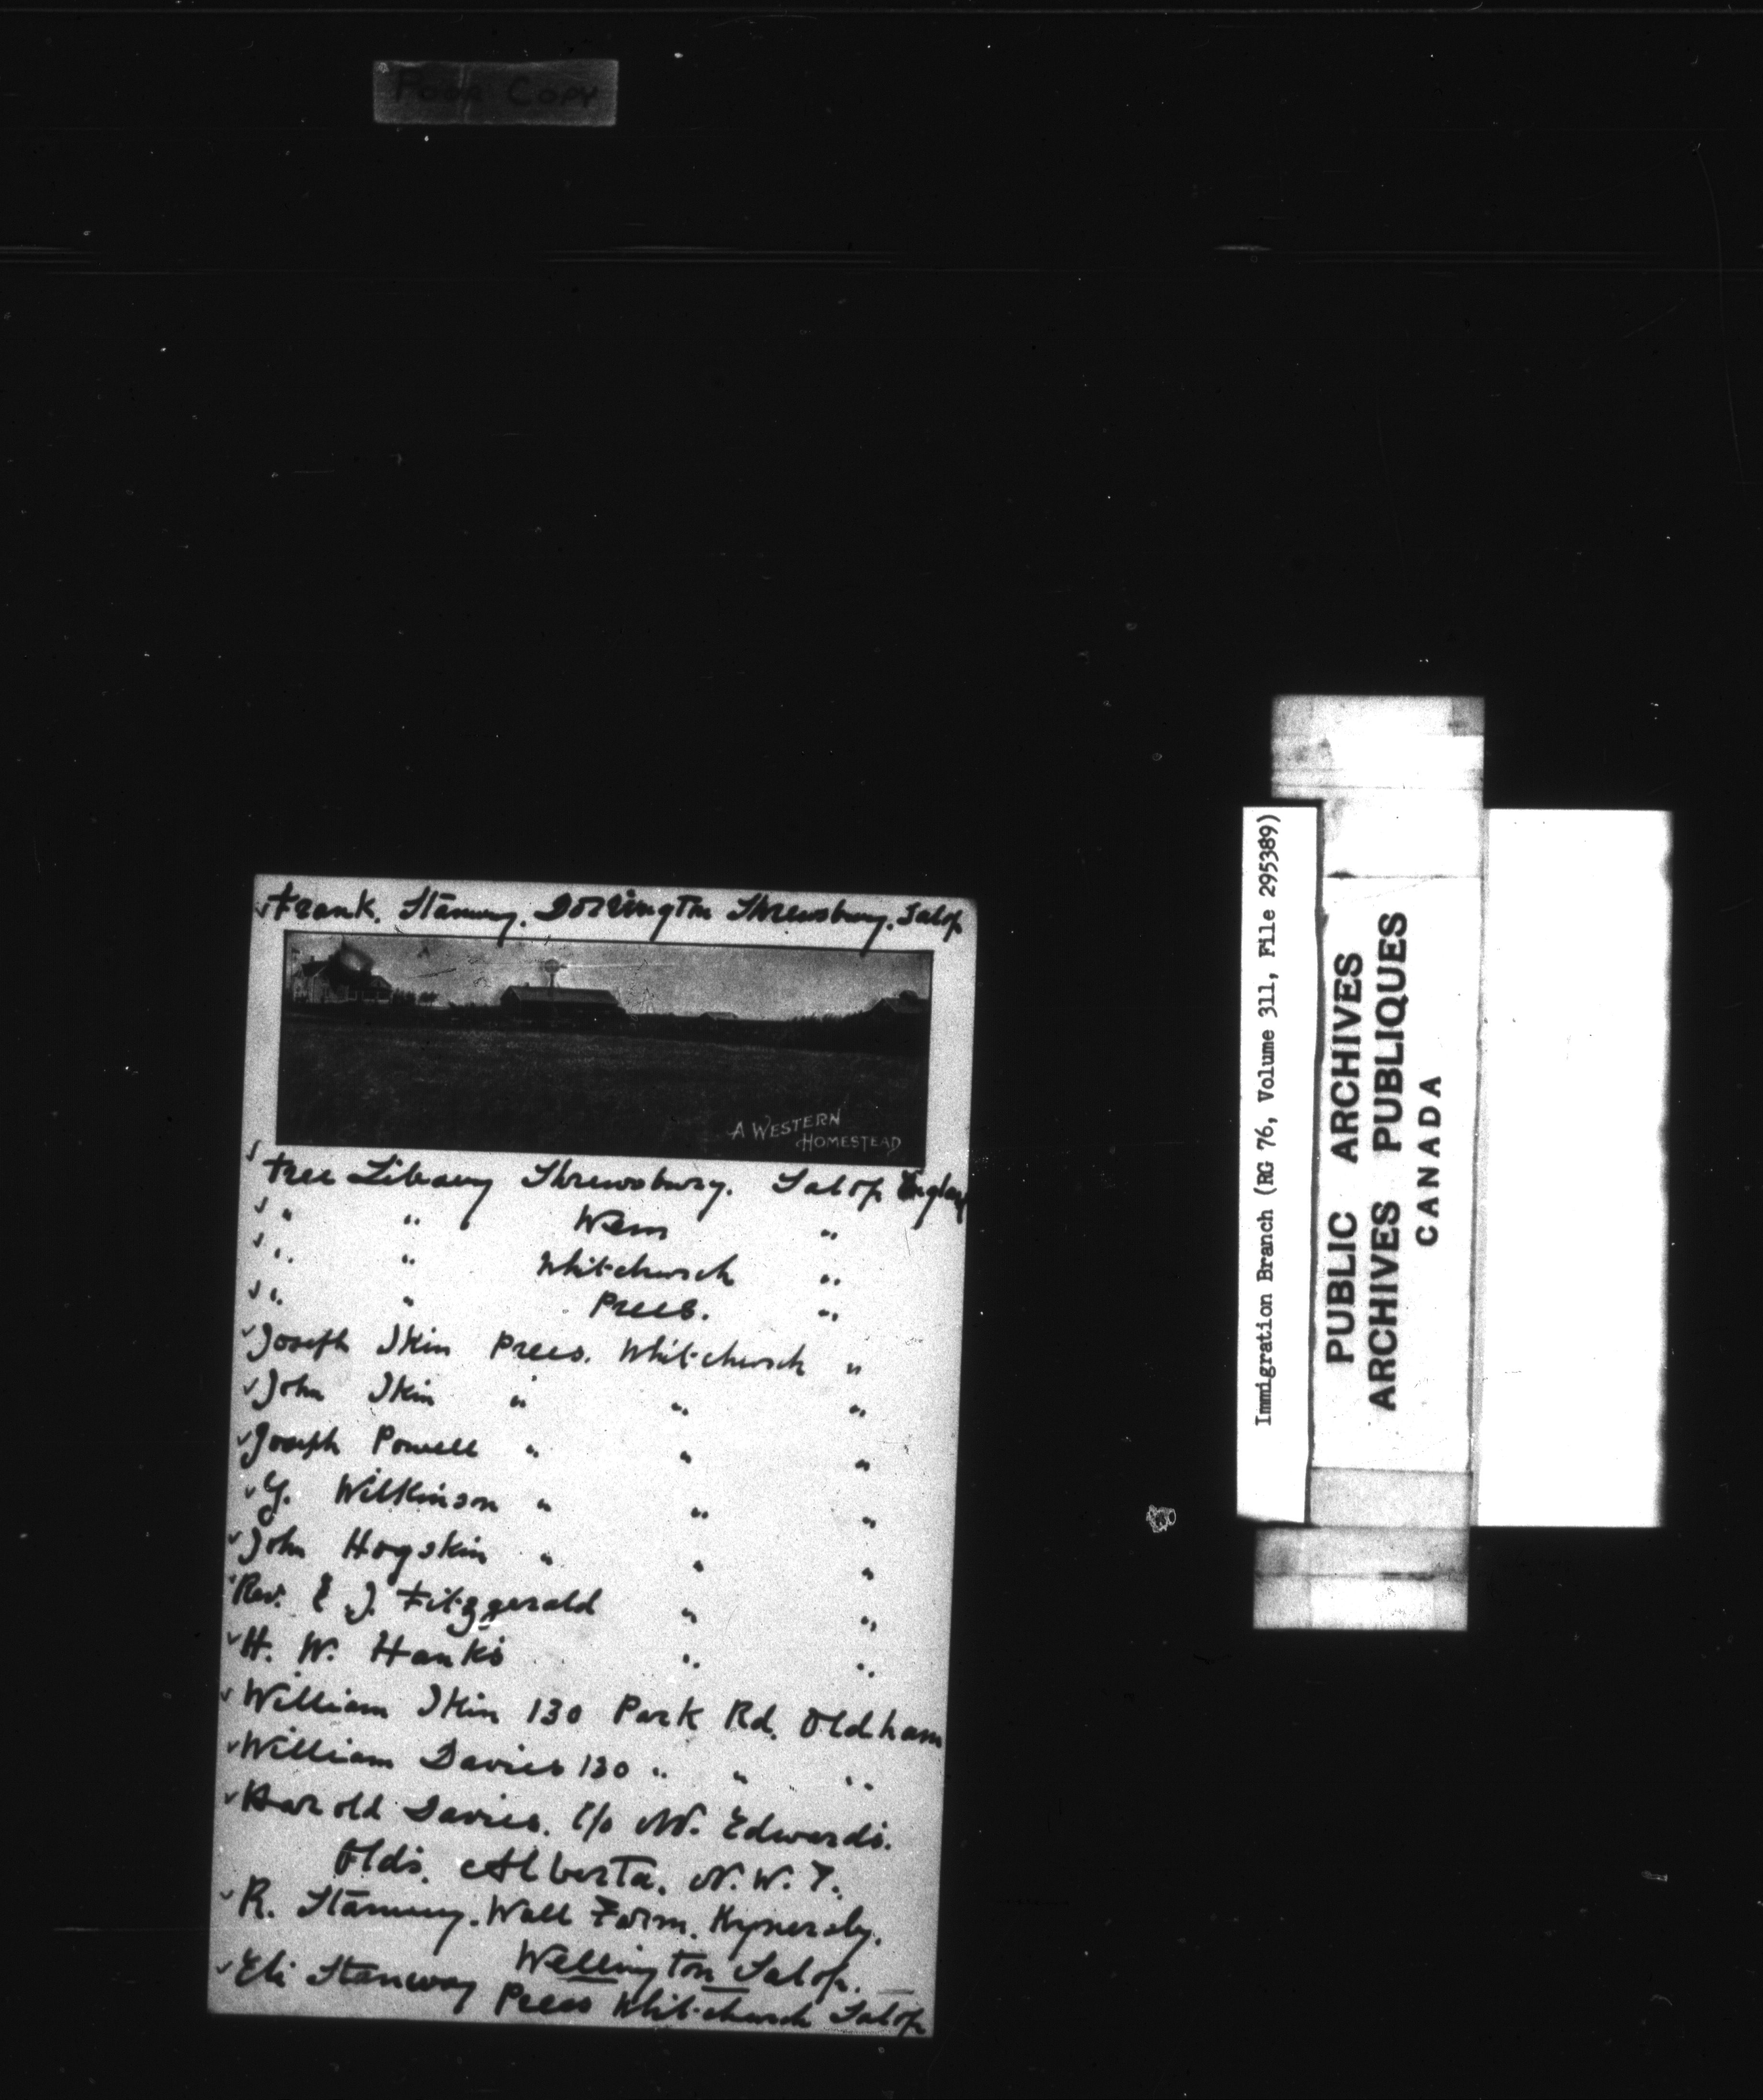 Poor Copy
✓ Frank. Stanway. Dorrington Shrewsbury. Salop
A WESTERN
HOMESTEAD
✓ Free Library Shrewsbury. Salop England
✓ " " Wem "
✓ " " Whitchurch "
✓ " " Prees. "
✓ Joseph Ikin Prees. Whitchurch "
✓ John Ikin " " "
✓ Joseph Powell " " "
✓ G. Wilkinson " " "
✓ John Hogskin " " "
✓ Rev. E J. Fitzgerald " "
✓ H. W. Hanks " "
✓ William Ikin 130 Park Rd. Oldham
✓ William Davies 130 " " "
✓ Harold Davies. c/o W. Edwards.
Olds. Alberta. N.W.T.
✓ R. Stanway. Wall Farm. Kynersley.
Wellington Salop.
✓ Eli Stanway Prees Whitchurch Salop
Immigration Branch (RG 76, Volume 311, File 295389)
PUBLIC ARCHIVES
ARCHIVES PUBLIQUES
CANADA